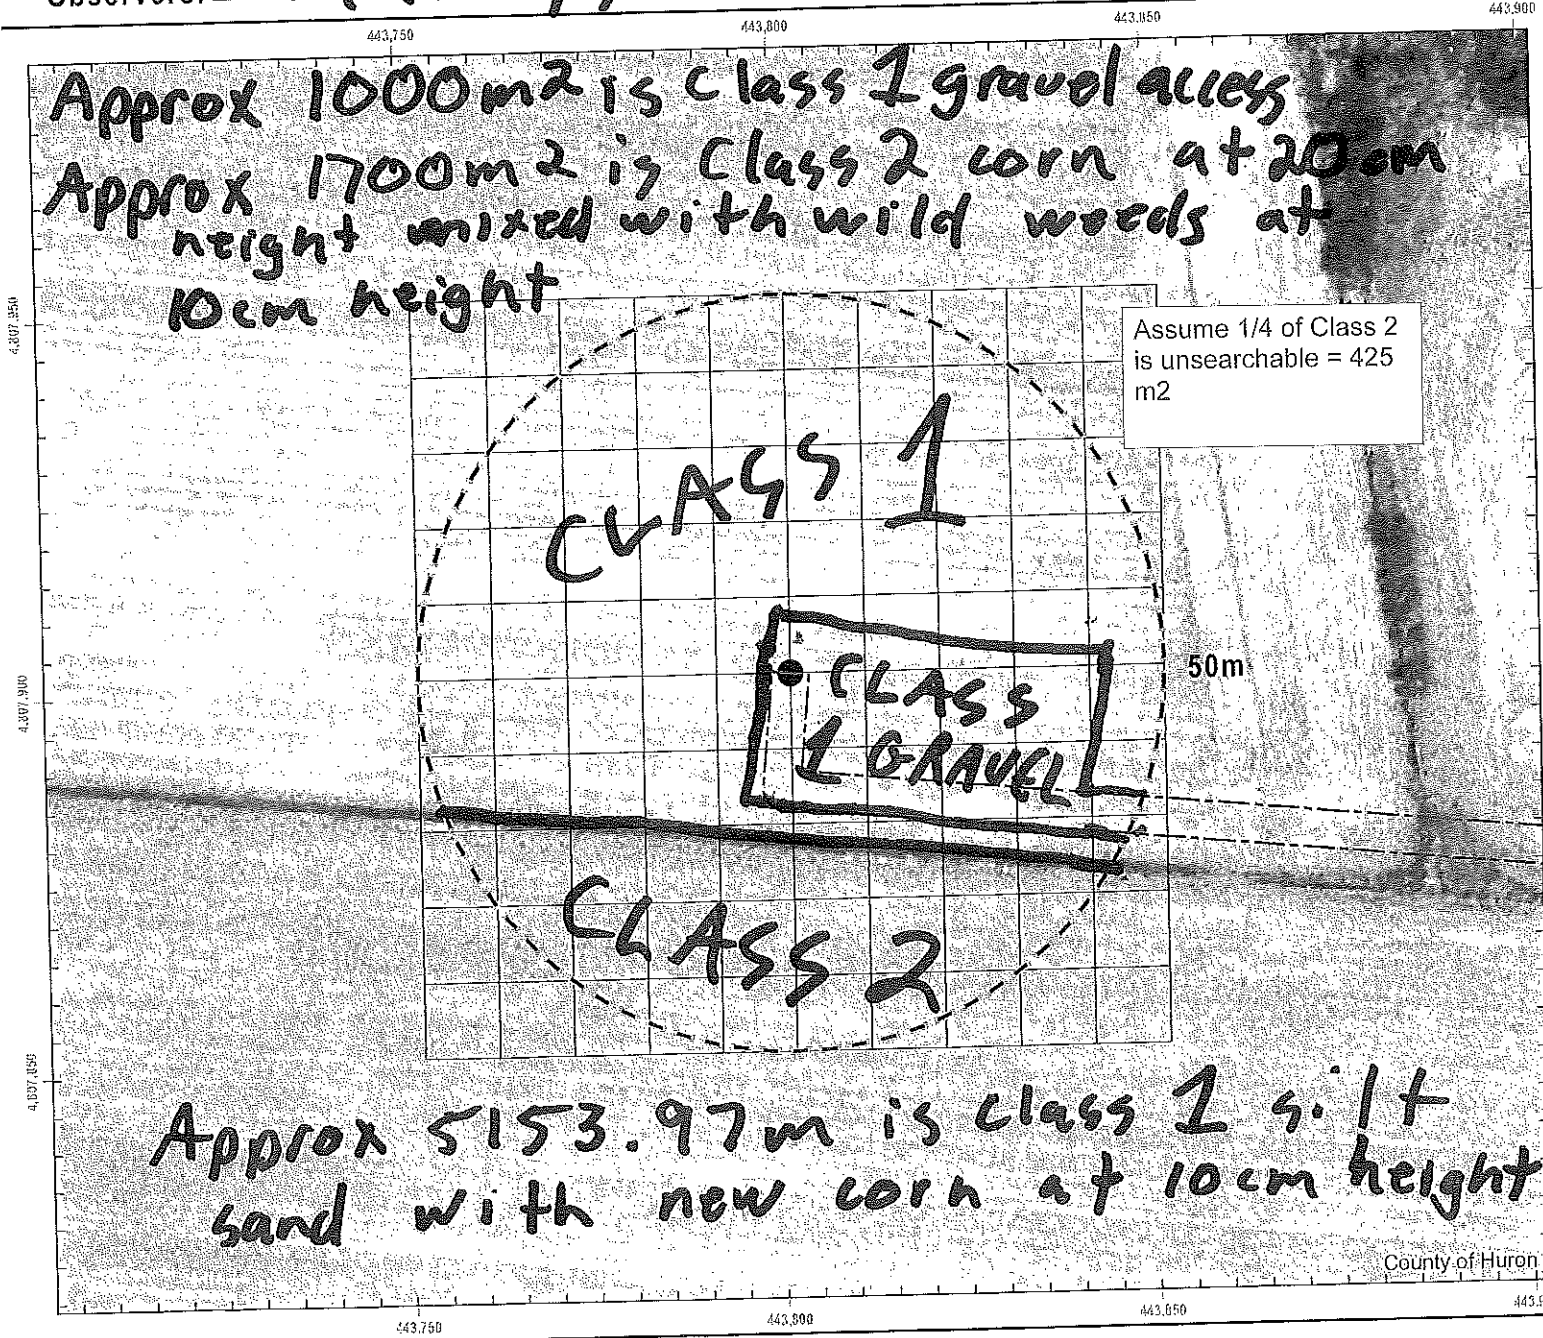 443,750
443,800
443,850
443,900
Approx 1000m2 is Class 1 gravel access
Approx 1700m2 is Class 2 corn at 20cm
height mixed with wild weeds at
10cm height
4,807,950
Assume 1/4 of Class 2
is unsearchable = 425
m2
CLASS 1
4,807,900
50m
CLASS
1 GRAVEL
CLASS 2
4,807,850
Approx 5153.97m is class 1 silt
sand with new corn at 10cm height
County of Huron
443,750
443,800
443,850